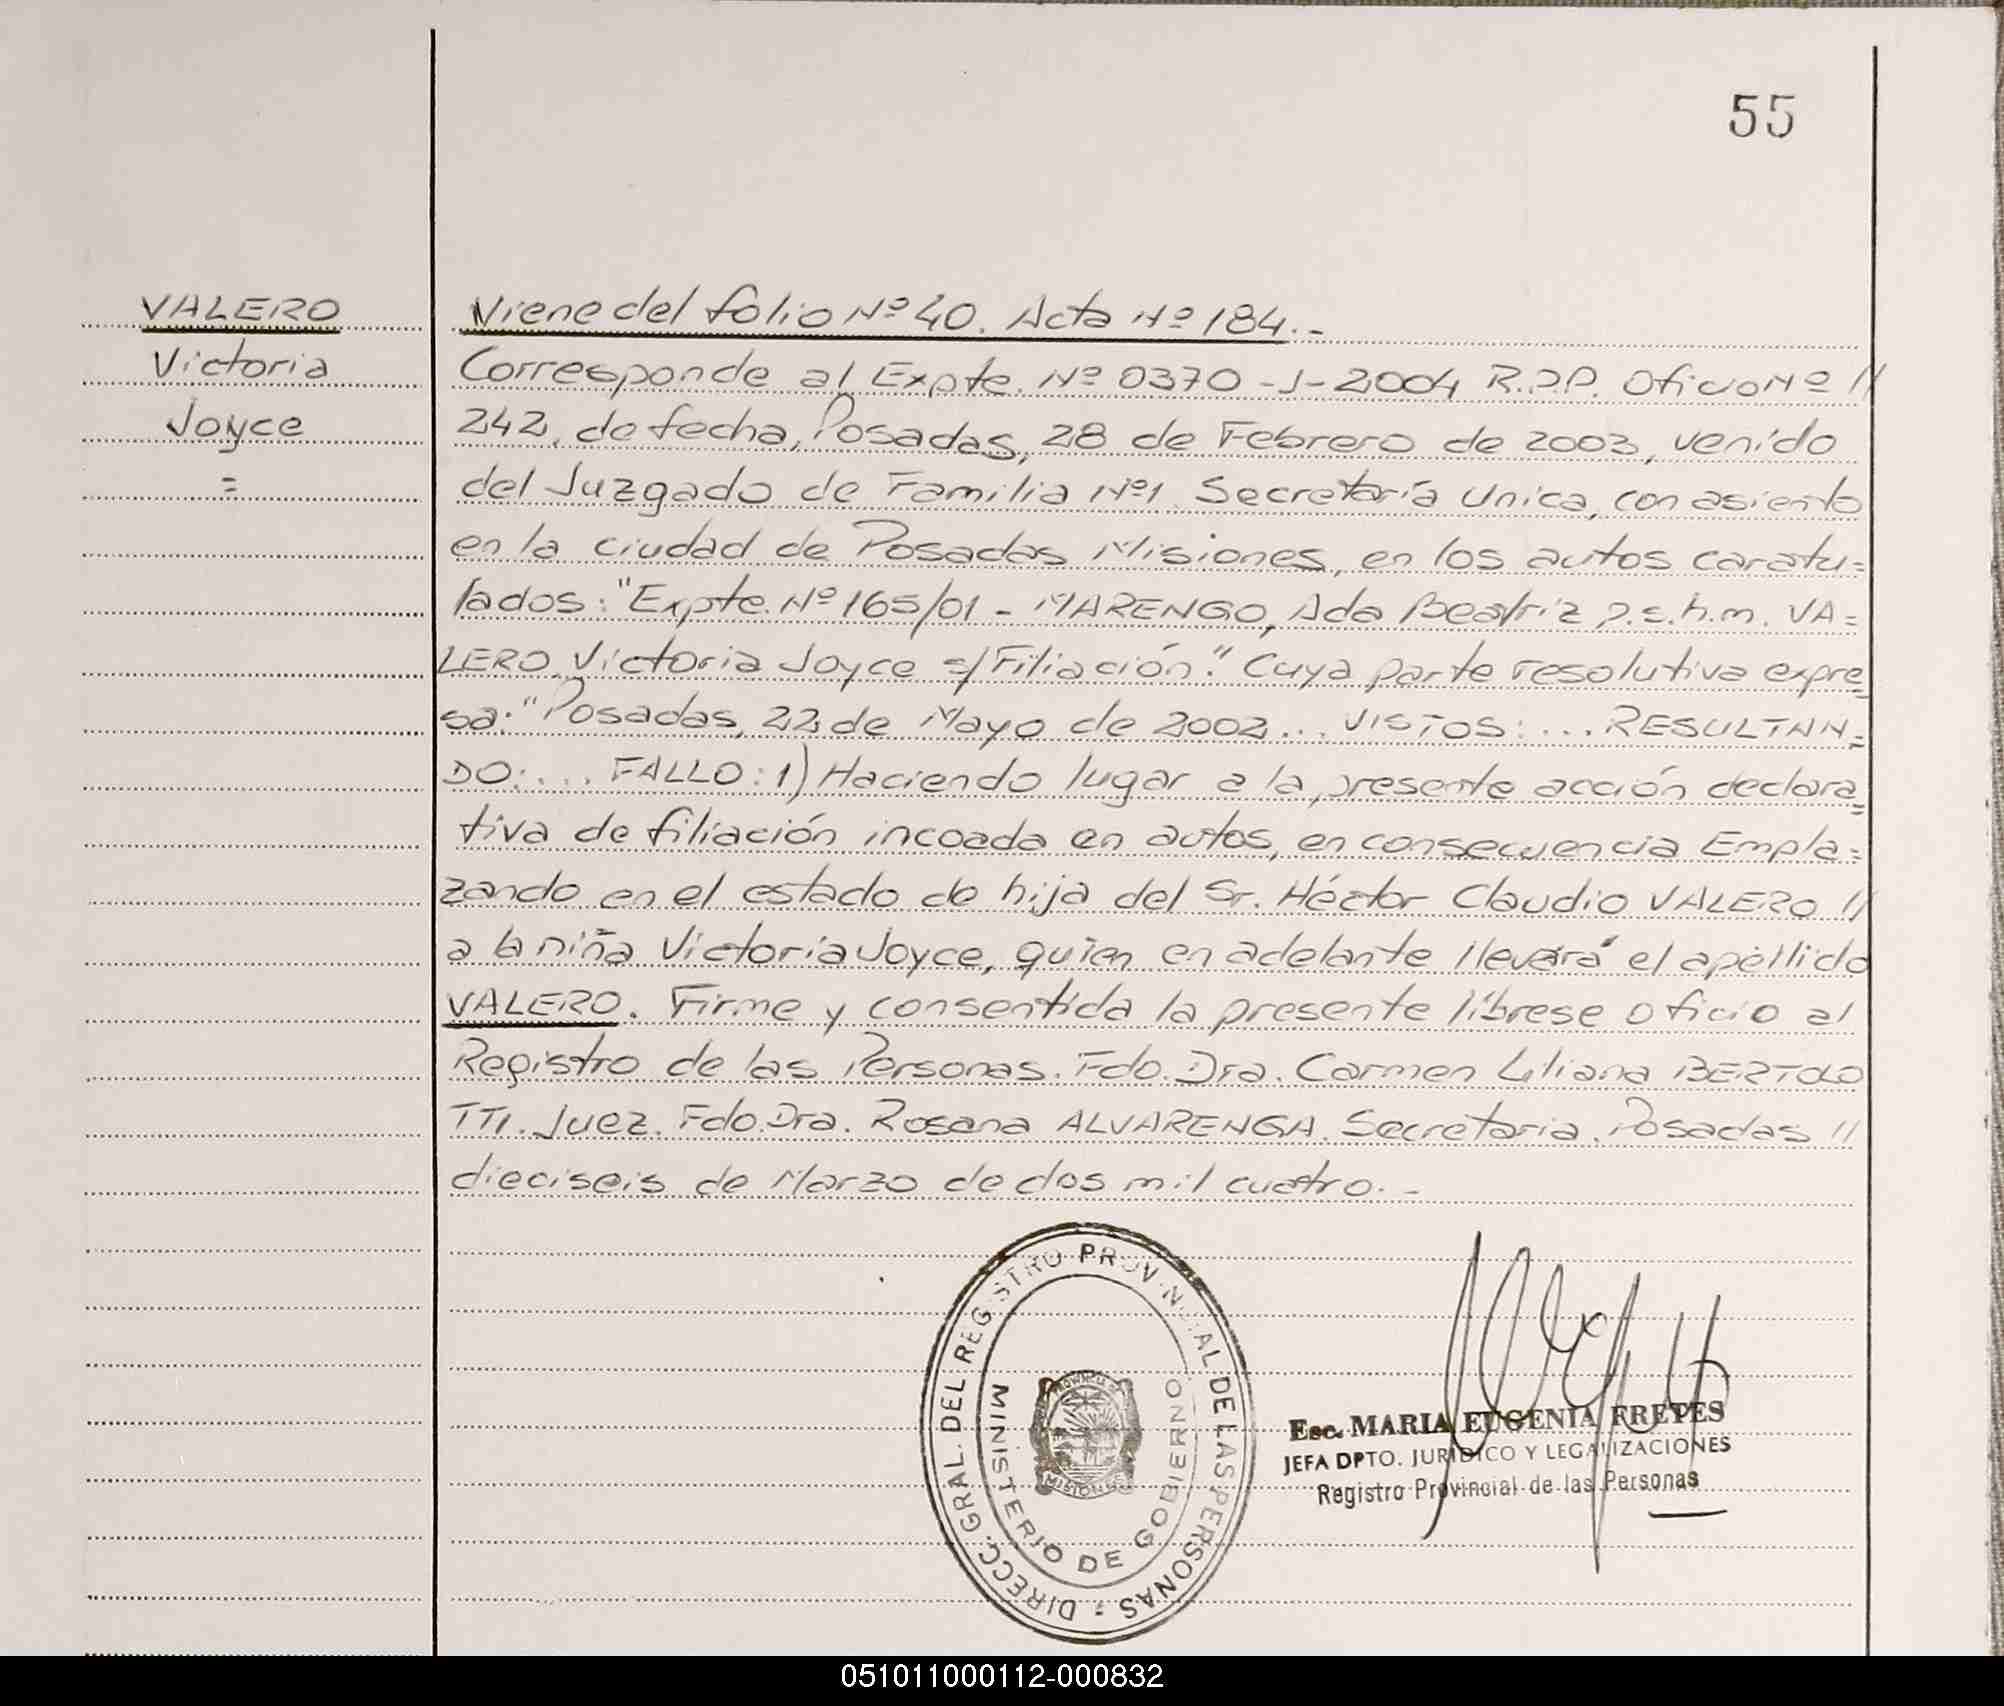 55
VALERO
Victoria
Joyce
=
Viene del folio Nº 40. Acta Nº 184.-
Corresponde al Expte. Nº 0370-J-2004 R.P.P. Oficio Nº //
242, de fecha, Posadas, 28 de Febrero de 2003, venido
del Juzgado de Familia Nº1 Secretaría Unica, con asiento
en la ciudad de Posadas Misiones, en los autos caratu=
lados: "Expte. Nº 165/01 - MARENGO, Ada Beatriz p.s.h.m. VA=
LERO, Victoria Joyce s/Filiación." Cuya parte resolutiva expre=
sa: "Posadas, 22 de Mayo de 2002... VISTOS: ... RESULTAN=
DO: ... FALLO: 1) Haciendo lugar a la presente acción declara=
tiva de filiación incoada en autos, en consecuencia Empla=
zando en el estado de hija del Sr. Héctor Claudio VALERO //
a la niña Victoria Joyce, quien en adelante llevará el apellido
VALERO. Firme y consentida la presente líbrese oficio al
Registro de las Personas. Fdo. Dra. Carmen Liliana BERTOLO
TTI. Juez. Fdo. Dra. Rosana ALVARENGA. Secretaria. Posadas //
dieciseis de Marzo de dos mil cuatro.-
DIRECC. GRAL. DEL REGISTRO PROVINCIAL DE LAS PERSONAS
MINISTERIO DE GOBIERNO
PROVINCIA DE
MISIONES
Esc. MARIA EUGENIA FRETES
JEFA DPTO. JURIDICO Y LEGALIZACIONES
Registro Provincial de las Personas
051011000112-000832